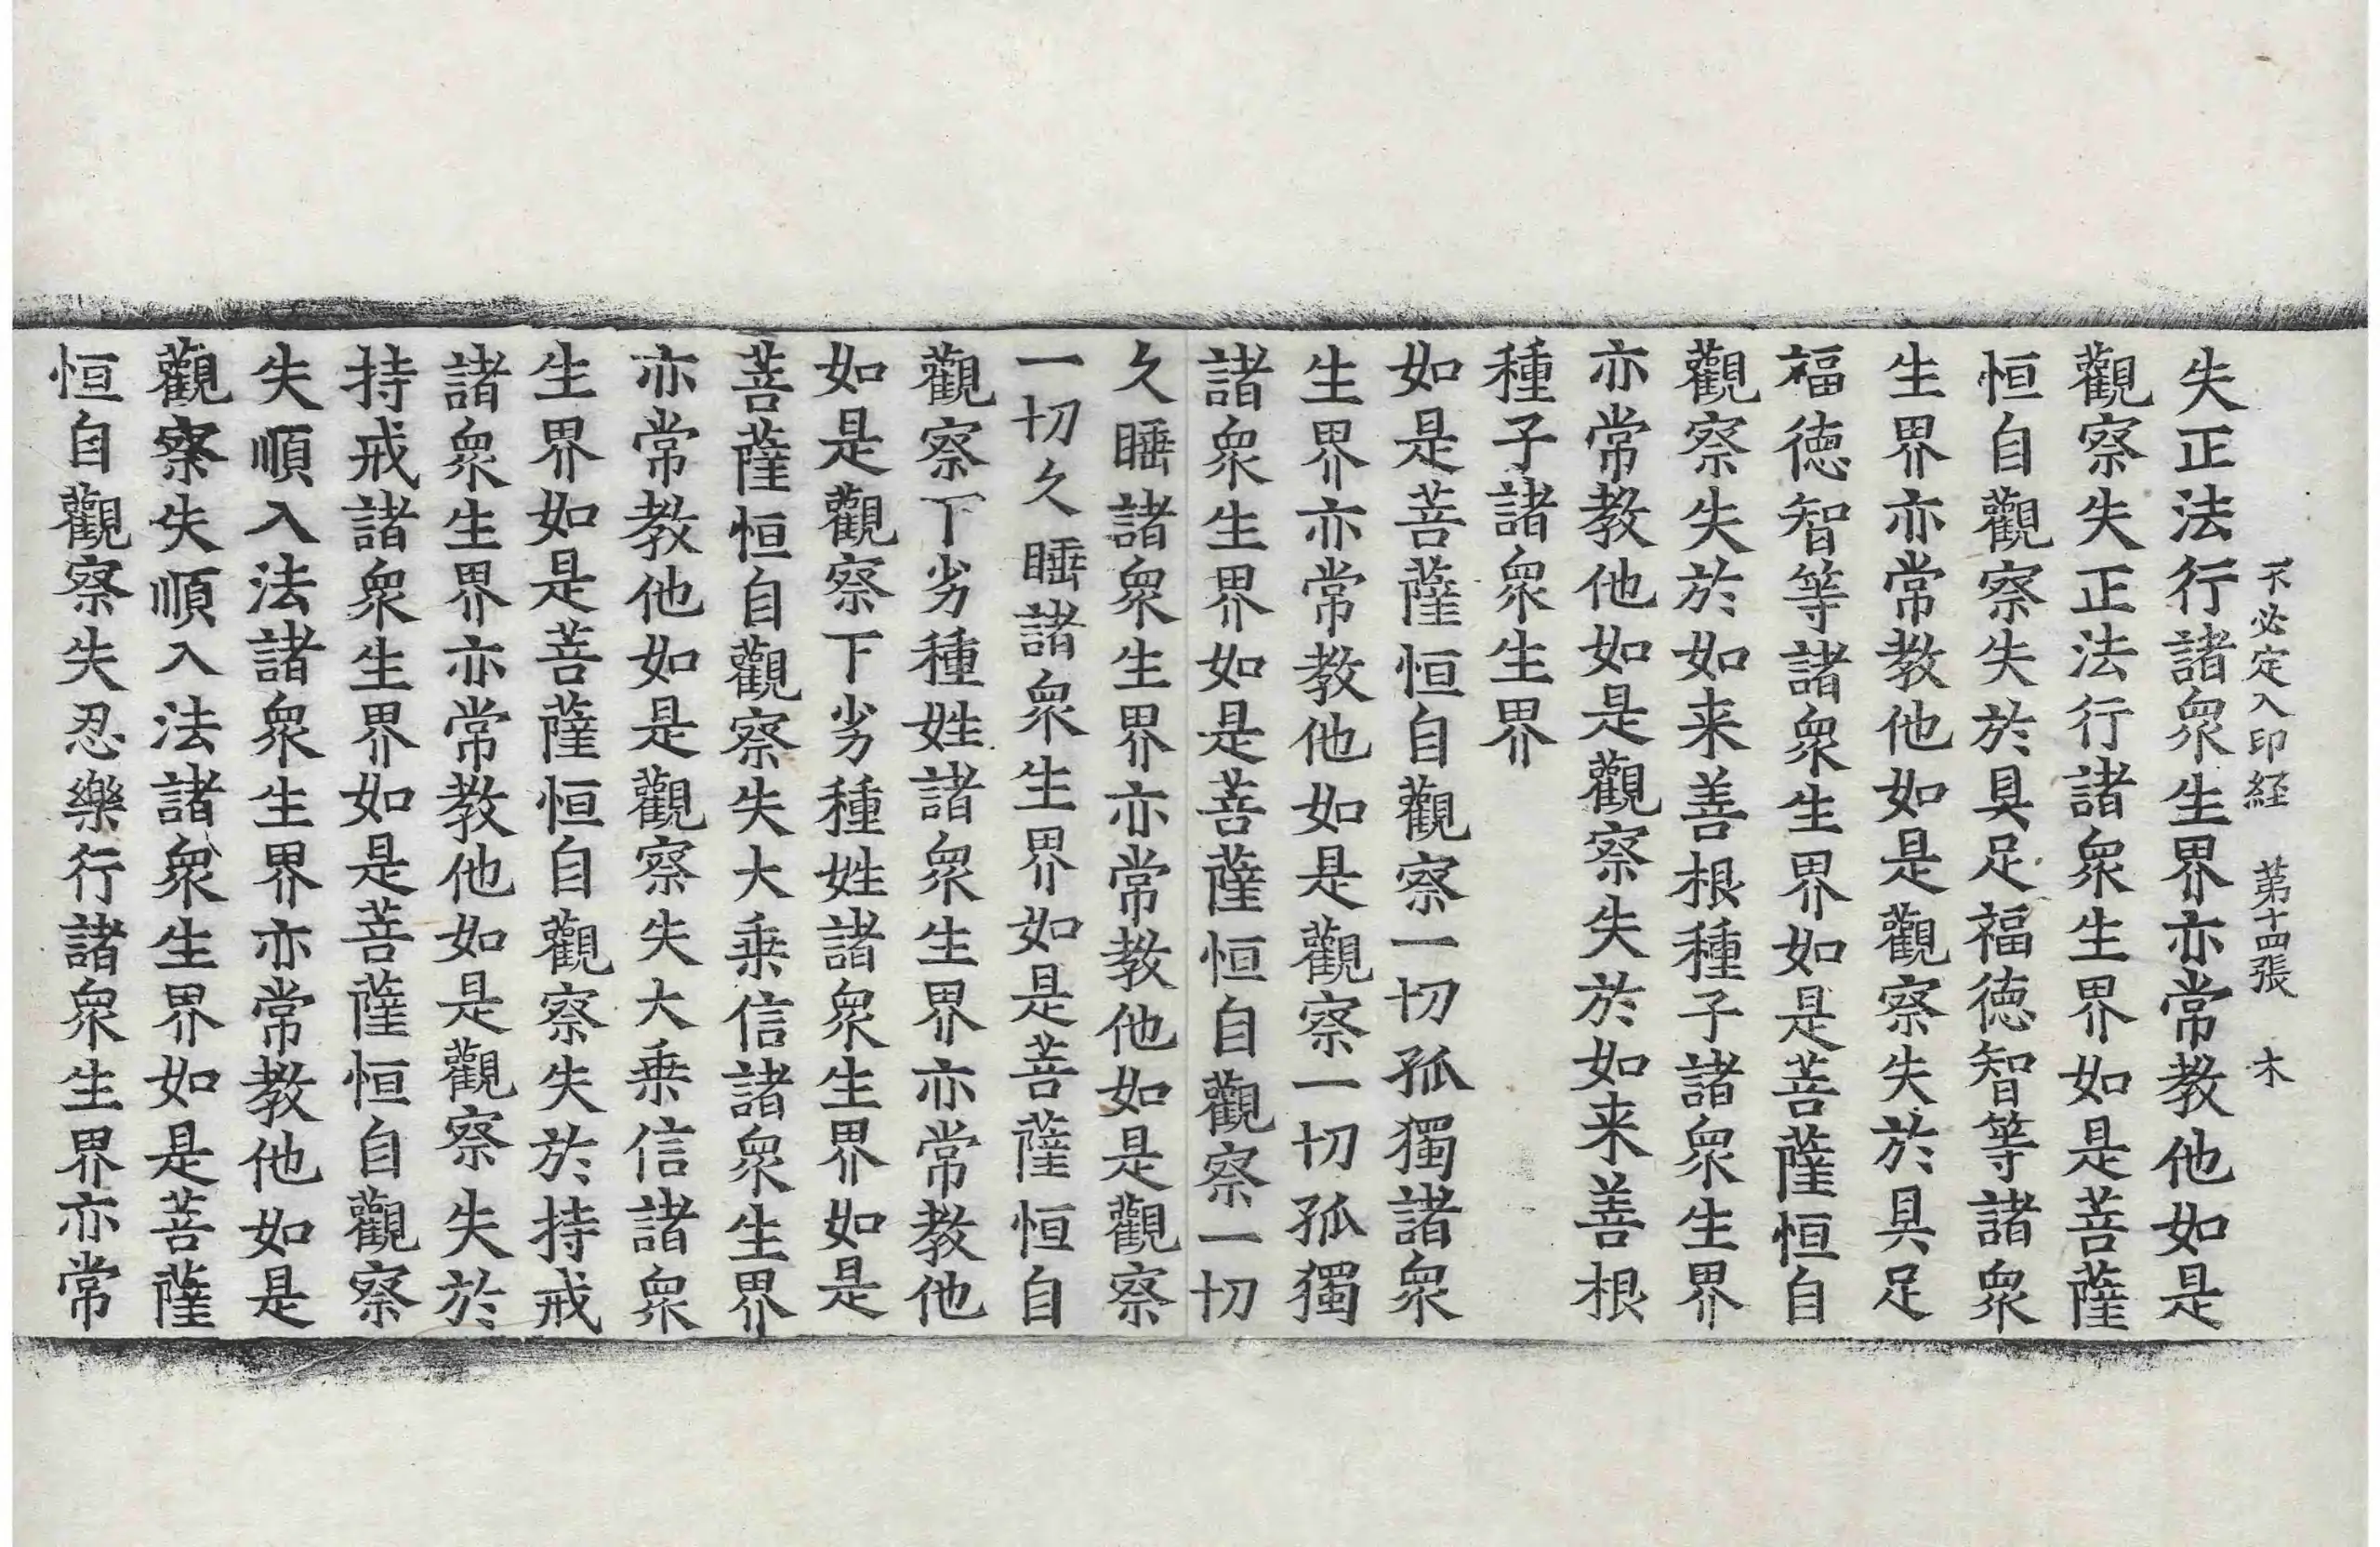 不必定入印経 苐十四張 木
失正法行諸衆生界亦常教他如是
觀察失正法行諸衆生界如是菩薩
恒自觀察失於具足福德智等諸衆
生界亦常教他如是觀察失於具足
福德智等諸衆生界如是菩薩恒自
觀察失於如来善根種子諸衆生界
亦常教他如是觀察失於如来善根
種子諸衆生界
如是菩薩恒自觀察一切孤獨諸衆
生界亦常教他如是觀察一切孤獨
諸衆生界如是菩薩恒自觀察一切
久睡諸衆生界亦常教他如是觀察
一切久睡諸衆生界如是菩薩恒自
觀察下劣種姓諸衆生界亦常教他
如是觀察下劣種姓諸衆生界如是
菩薩恒自觀察失大乗信諸衆生界
亦常教他如是觀察失大乗信諸衆
生界如是菩薩恒自觀察失於持戒
諸衆生界亦常教他如是觀察失於
持戒諸衆生界如是菩薩恒自觀察
失順入法諸衆生界亦常教他如是
觀察失順入法諸衆生界如是菩薩
恒自觀察失忍樂行諸衆生界亦常